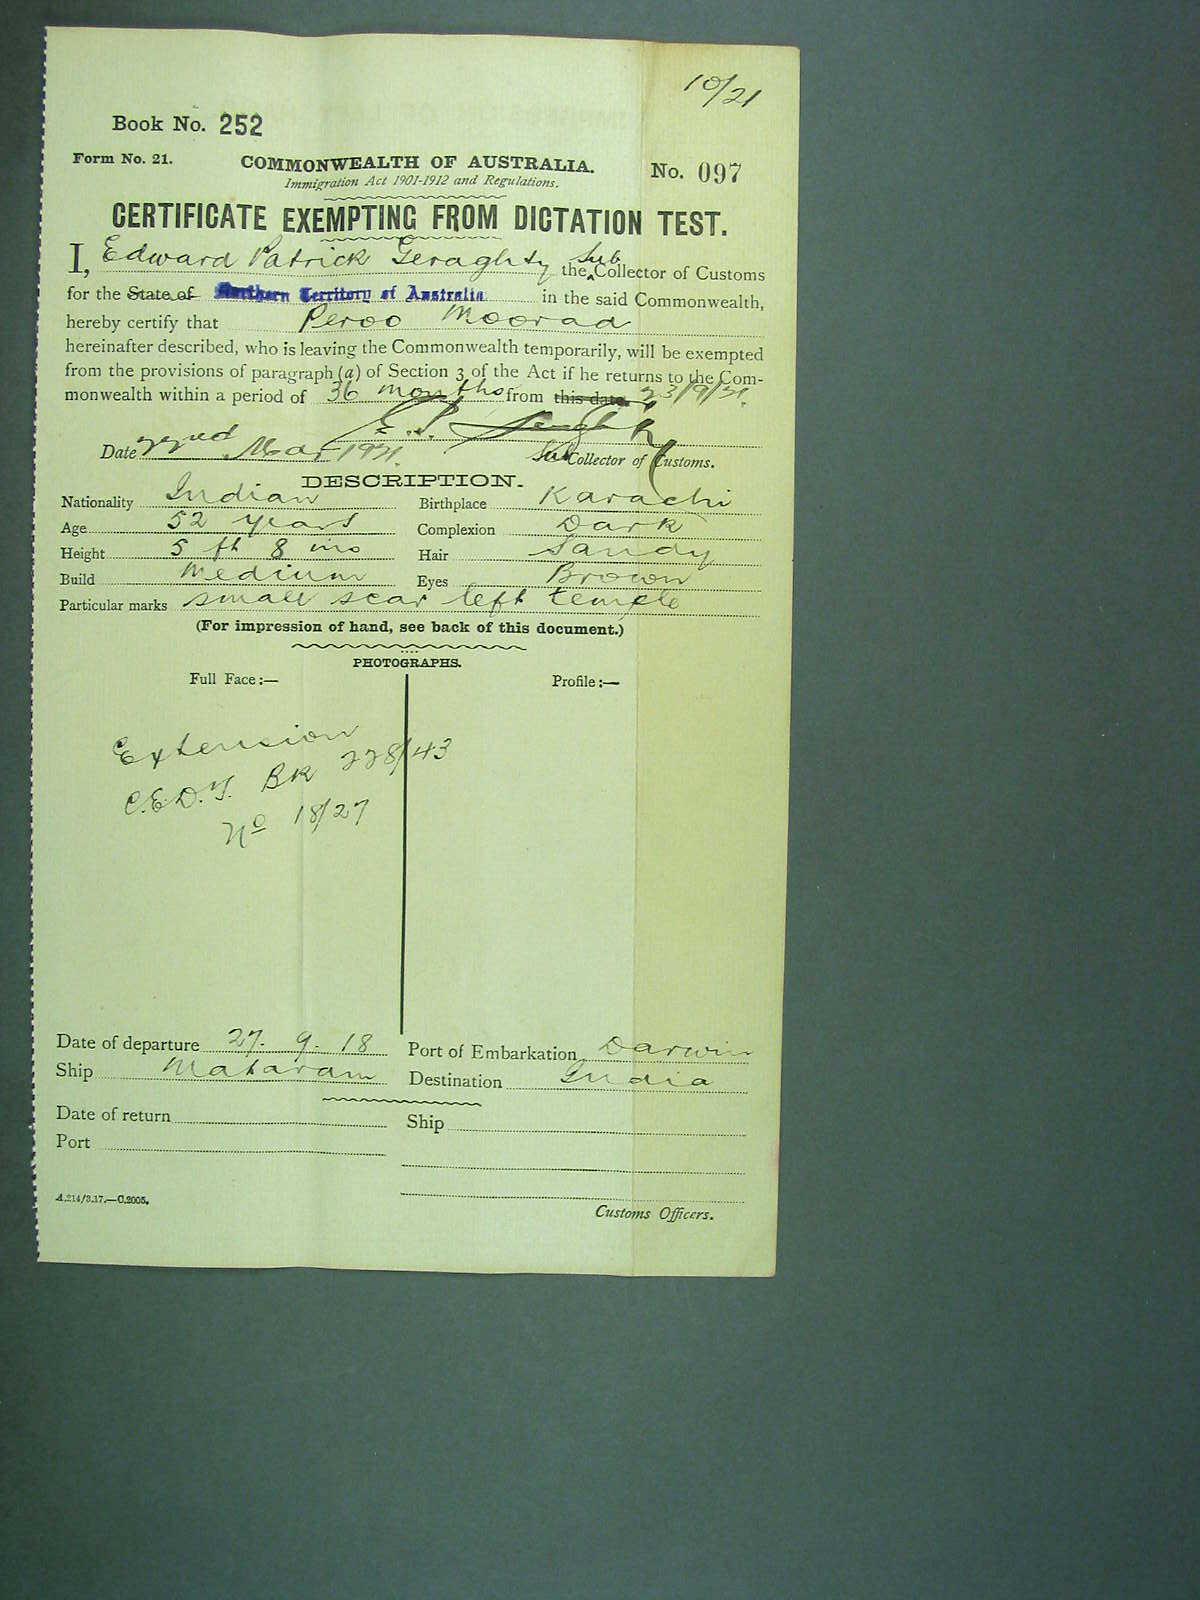 10/21
Book No. 252
Form No. 21.
COMMONWEALTH OF AUSTRALIA.
No. 097
Immigration Act 1901-1912 and Regulations.
CERTIFICATE EXEMPTING FROM DICTATION TEST.
I, Edward Patrick Geraghty the Sub Collector of Customs
for the State of Northern Territory of Australia in the said Commonwealth,
hereby certify that Peroo Moorad
hereinafter described, who is leaving the Commonwealth temporarily, will be exempted
from the provisions of paragraph (a) of Section 3 of the Act if he returns to the Com-
monwealth within a period of 36 months from this date. 23/9/21.
Date 22nd Mar 1921.
Sub Collector of Customs.
DESCRIPTION.
Nationality Indian Birthplace Karachi
Age 52 years Complexion Dark
Height 5 ft 8 ins Hair Sandy
Build Medium Eyes Brown
Particular marks small scar left temple
(For impression of hand, see back of this document.)
PHOTOGRAPHS.
Full Face:— Profile:—
Extension
C.E.D.T. BK 228/43
No 18/27
Date of departure 27. 9. 18 Port of Embarkation Darwin
Ship Mataram Destination India
Date of return Ship
Port
A.214/3.17.—C.2005.
Customs Officers.